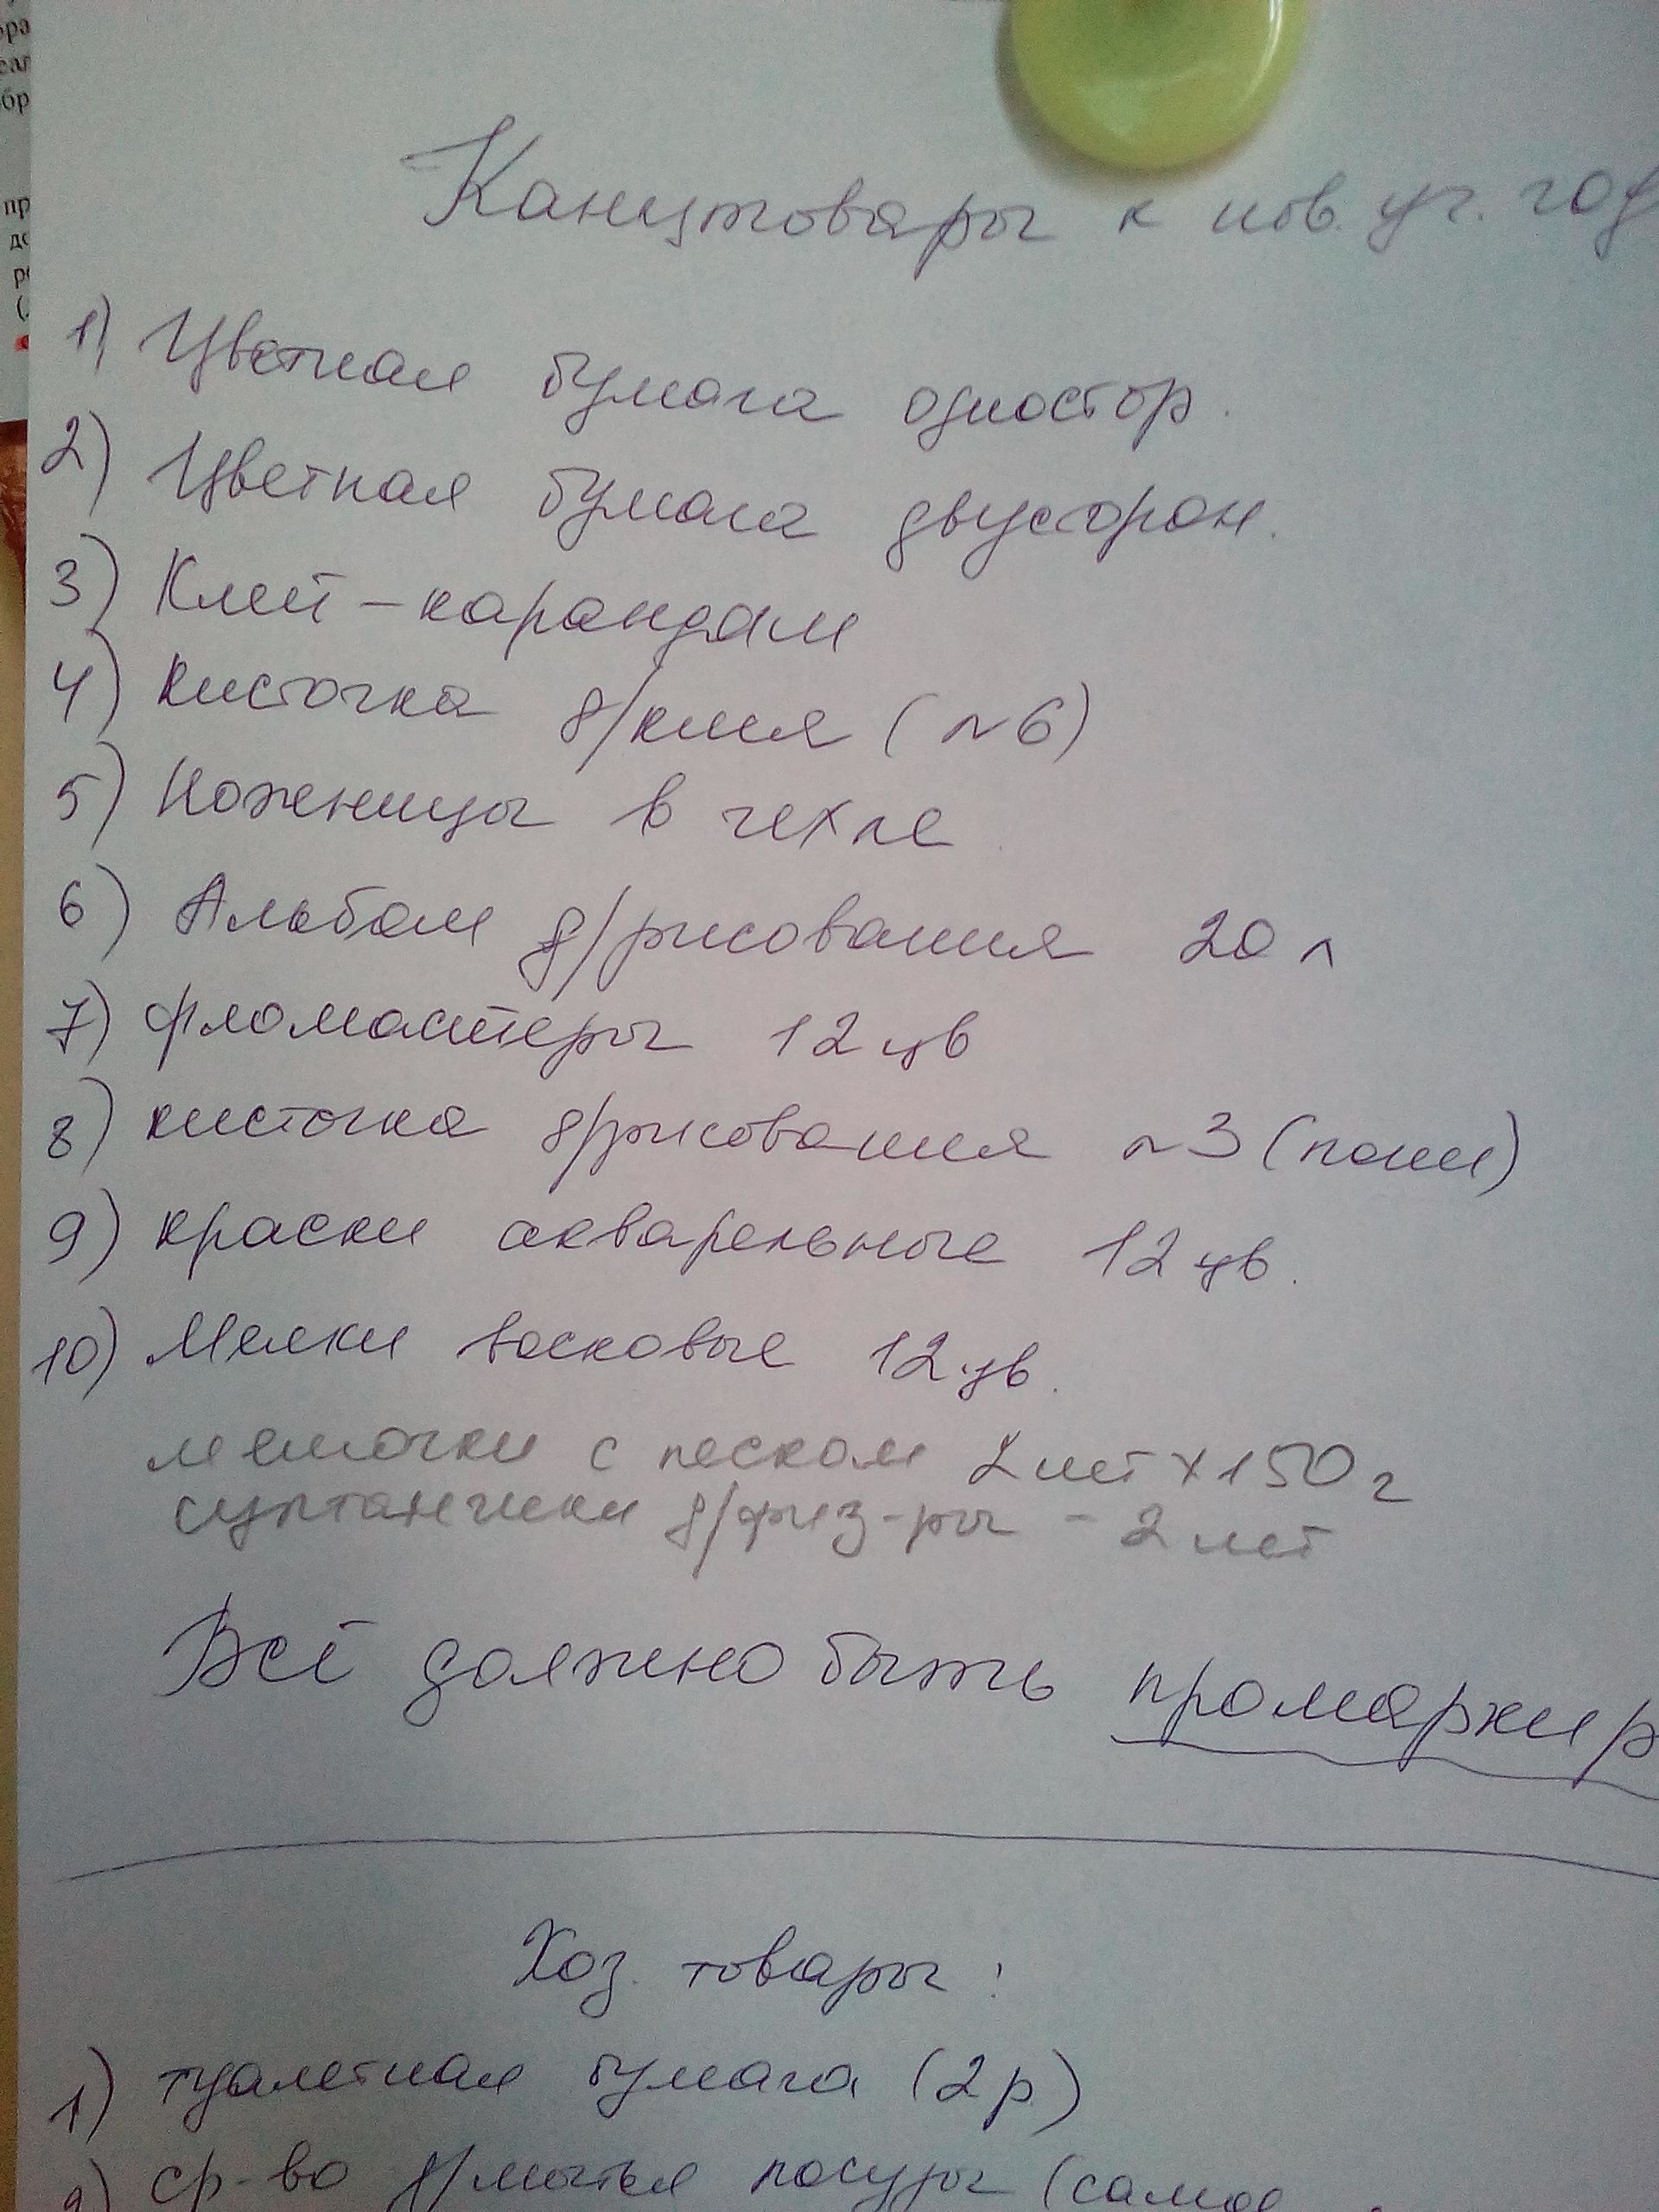 Канцтовары к нов. уч. год
1) Цветная бумага одностор.
2) Цветная бумага двусторон.
3) Клей-карандаш
4) кисточка д/клея (N6)
5) Ножницы в чехле
6) Альбом д/рисования 20 л
7) фломастеры 12 цв
8) кисточка д/рисования N3 (пони)
9) краски акварельные 12 цв.
10) Мелки восковые 12 цв.
мешочки с песком 2 шт х 150 г
султанчики д/физ-ры - 2 шт
Всё должно быть промаркир
Хоз. товары:
1) туалетная бумага (2р)
2) ср-во д/мытья посуды (самое